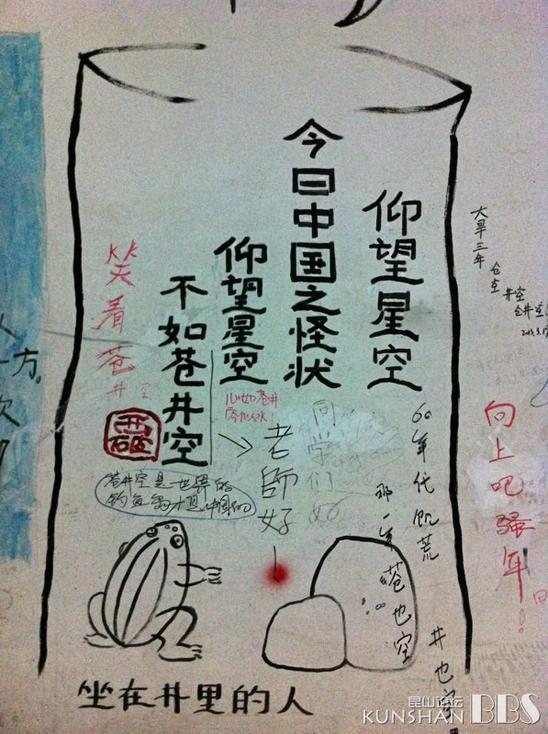 仰望星空
今日中国之怪状
仰望星空
不如苍井空
笑看苍井空
心如苍井
老師好！
同学们好
苍井空是世界的
钓鱼岛才是中国的
60年代饥荒
那一年
苍也空
井也空
大旱三年
仓空
井空
仓井空
向上吧骚年！
坐在井里的人
昆山论坛
KUNSHAN BBS